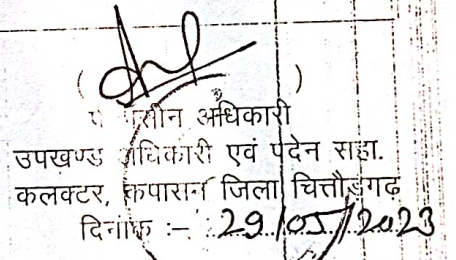 ( )
पीठासीन अधिकारी
उपखण्ड अधिकारी एवं पदेन सहा.
कलक्टर, कपासन जिला चित्तौड़गढ़
दिनांक :- 29/05/2023